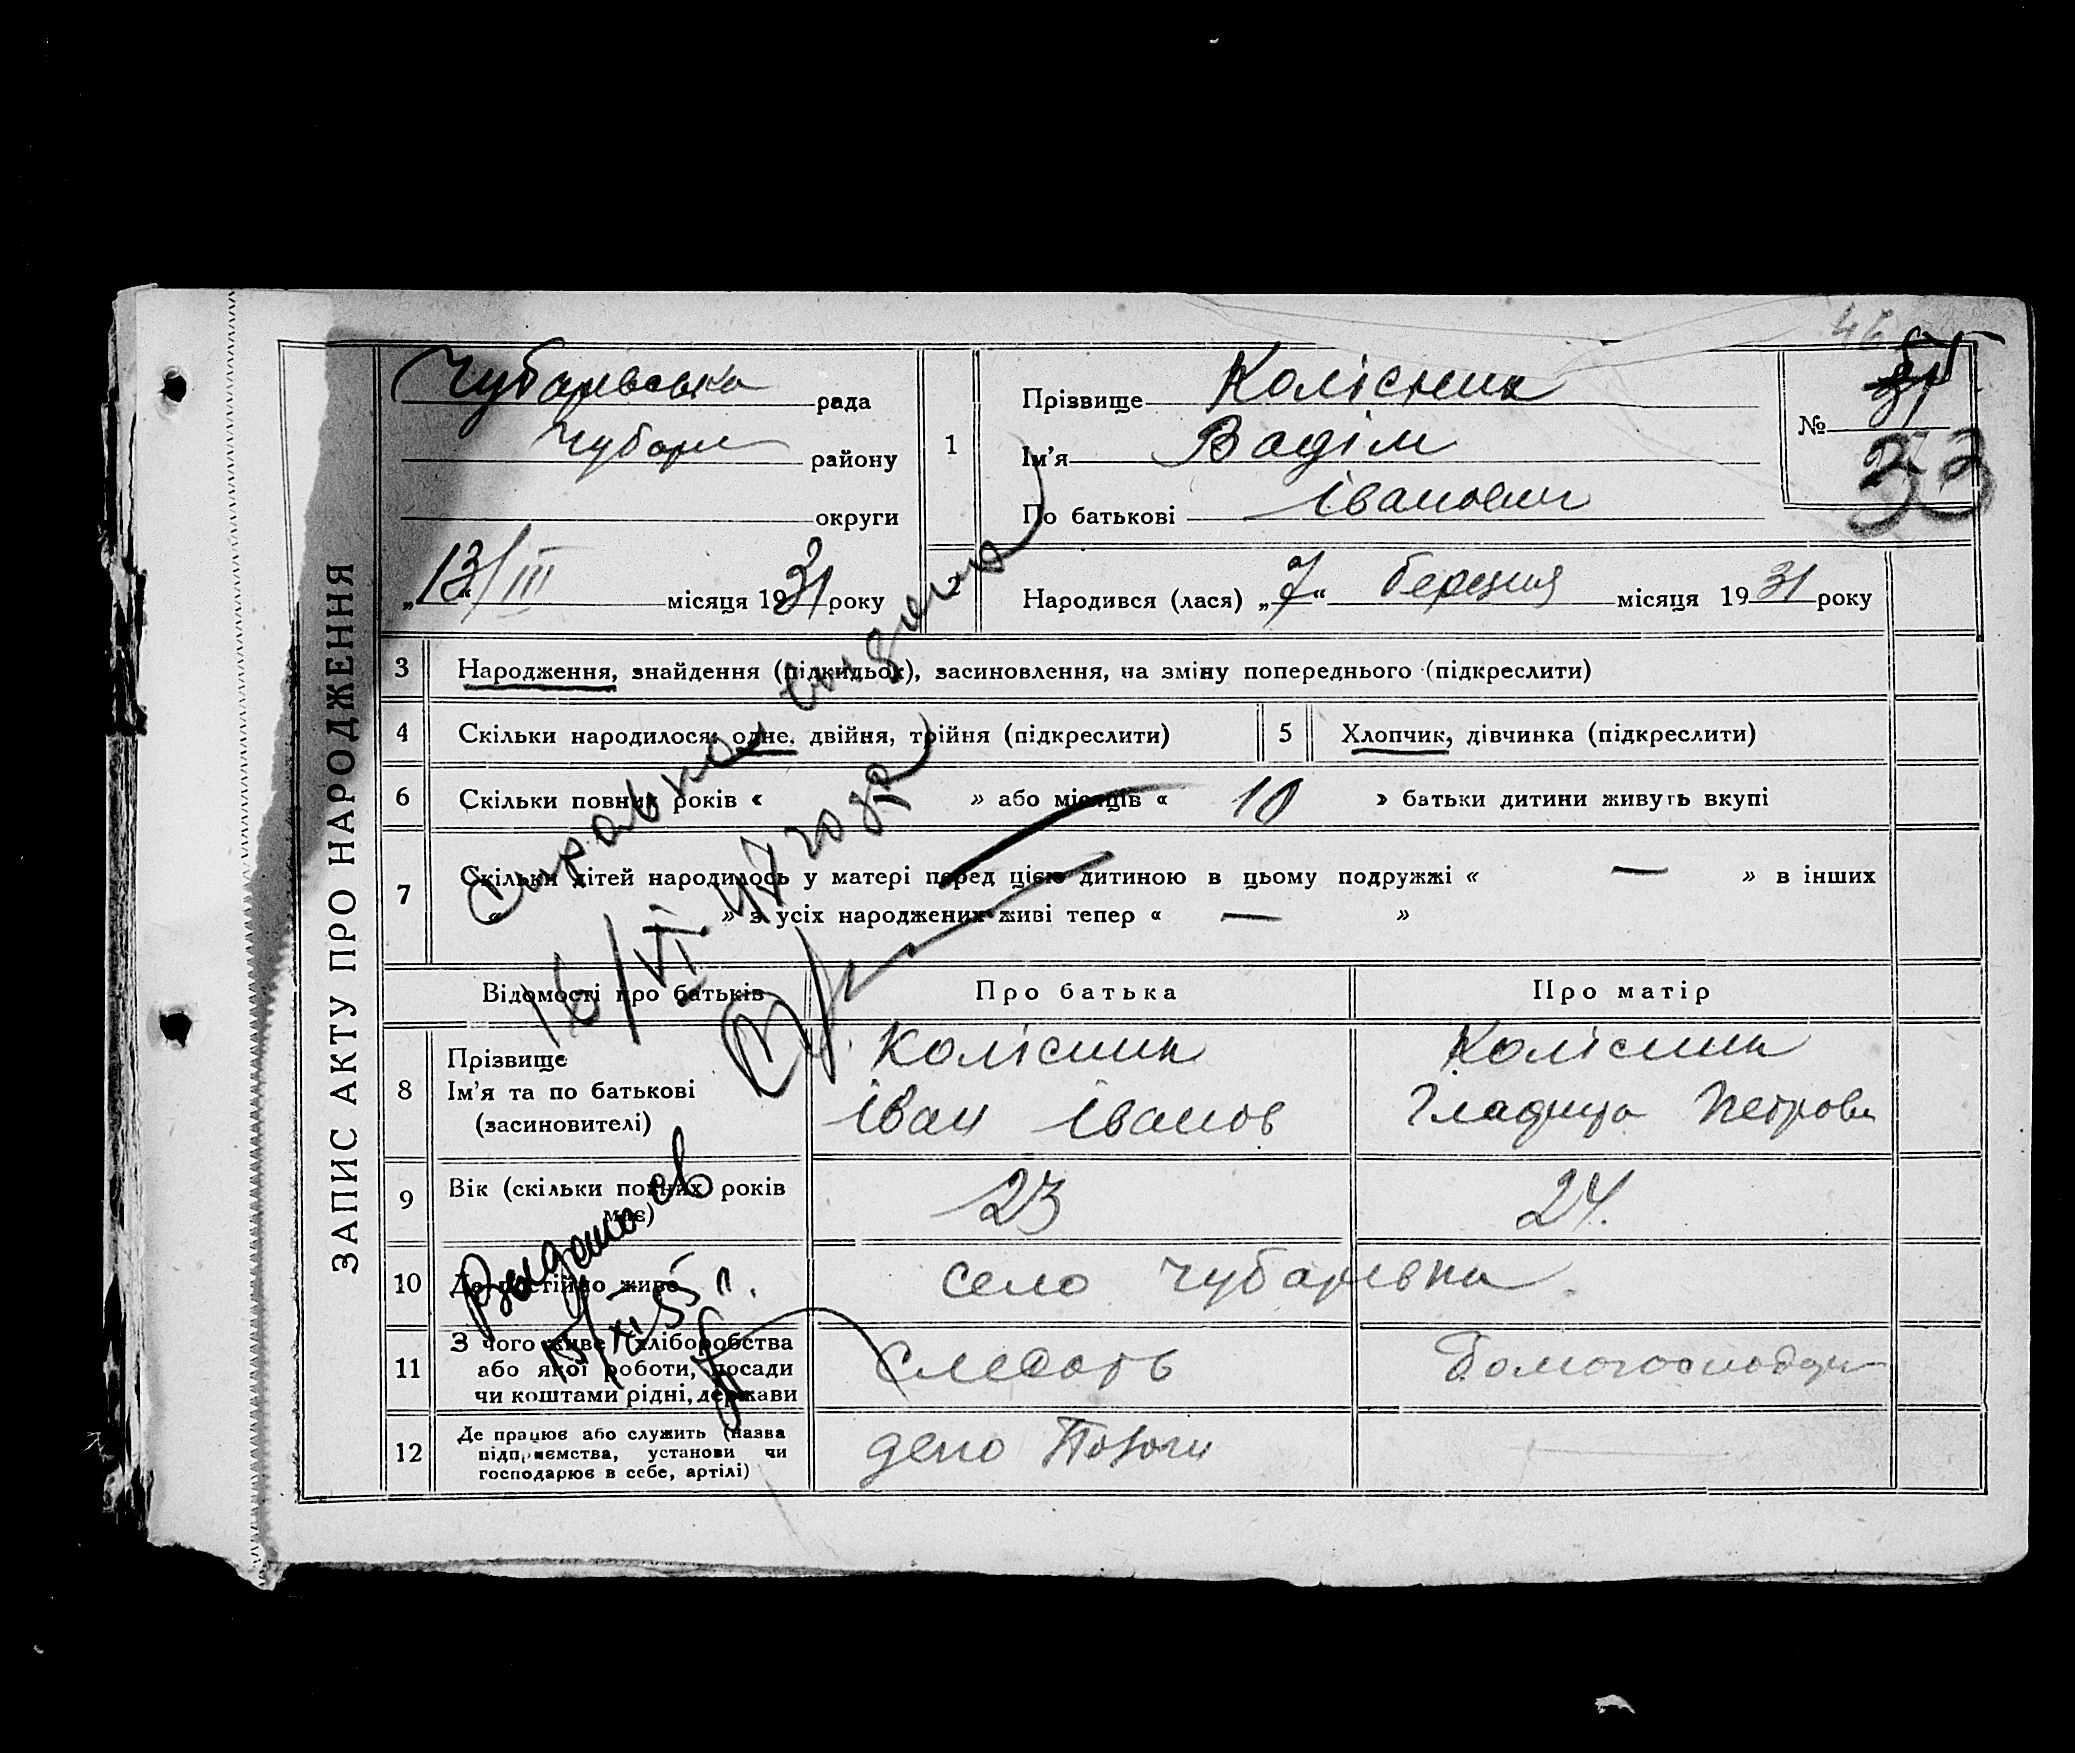 ЗАПИС АКТУ ПРО НАРОДЖЕННЯ
Чубарівська рада
Чубарі району
округи
„13/III місяця 1931 року
1
Прізвище Колісник
Ім'я Вадім
По батькові Іванович
№
33
2
Народився (лася) „7“ березня місяця 1931 року
3 Народження, знайдення (підкидьок), засиновлення, на зміну попереднього (підкреслити)
4 Скільки народилося: одне, двійня, трійня (підкреслити)
5 Хлопчик, дівчинка (підкреслити)
6 Скільки повних років « » або місяців « 10 » батьки дитини живуть вкупі
7 Скільки дітей народилось у матері перед цією дитиною в цьому подружжі « — » в інших
« » з усіх народжених живі тепер « — »
Справка видана
16/VI 47 года
Відомості про батьків
Про батька
Про матір
8 Прізвище
Ім'я та по батькові
(засиновителі)
Колісник
Іван Іванов
Колісник
Петровн
9 Вік (скільки повних років
має)
23
24.
10 Де постійно живе
село Чубарівка
11 З чого живе (хліборобства
або якої роботи, посади
чи коштами рідні, держави
Слесарь
Домогосподар
12 Де працює або служить (назва
підприємства, установи чи
господарює в себе, артілі)
депо Пологи